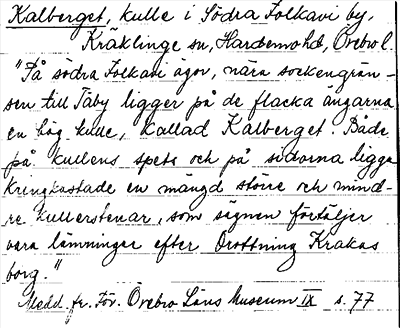 Kalberget, kulle i Södra Folkavi by,
Kräklinge sn, Hardemo hd, Örebro l.
"På södra Folkavi ägor, nära sockengrän-
sen till Täby ligger på de flacka ängarna
en hög kulle, kallad Kalberget. Både
på kullens spets och på sidorna ligga
kringkastade en mängd större och mind-
re kullerstenar, som sägnen förtäljer
vara lämningar efter Drottning Krakas
borg."
Medd. fr. För. Örebro Läns Museum IX s. 77